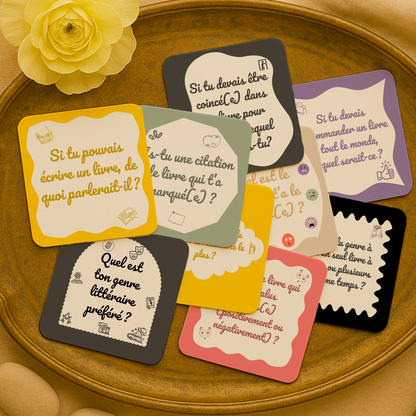 Si tu devais être
coincé(e) dans
livre pour
lequel
-tu?
Si tu devais
mmander un livre
tout le monde,
quel serait-ce ?
Si tu pouvais
écrire un livre, de
quoi parlerait-il ?
s-tu une citation
e livre qui t'a
marqué(e) ?
est le
t'a le
(e) ?
plus ?
Quel est
ton genre
littéraire
préféré ?
livre qui
plus
(e)
(positivement ou
négativement) ?
du genre à
un seul livre à
ou plusieurs
me temps ?